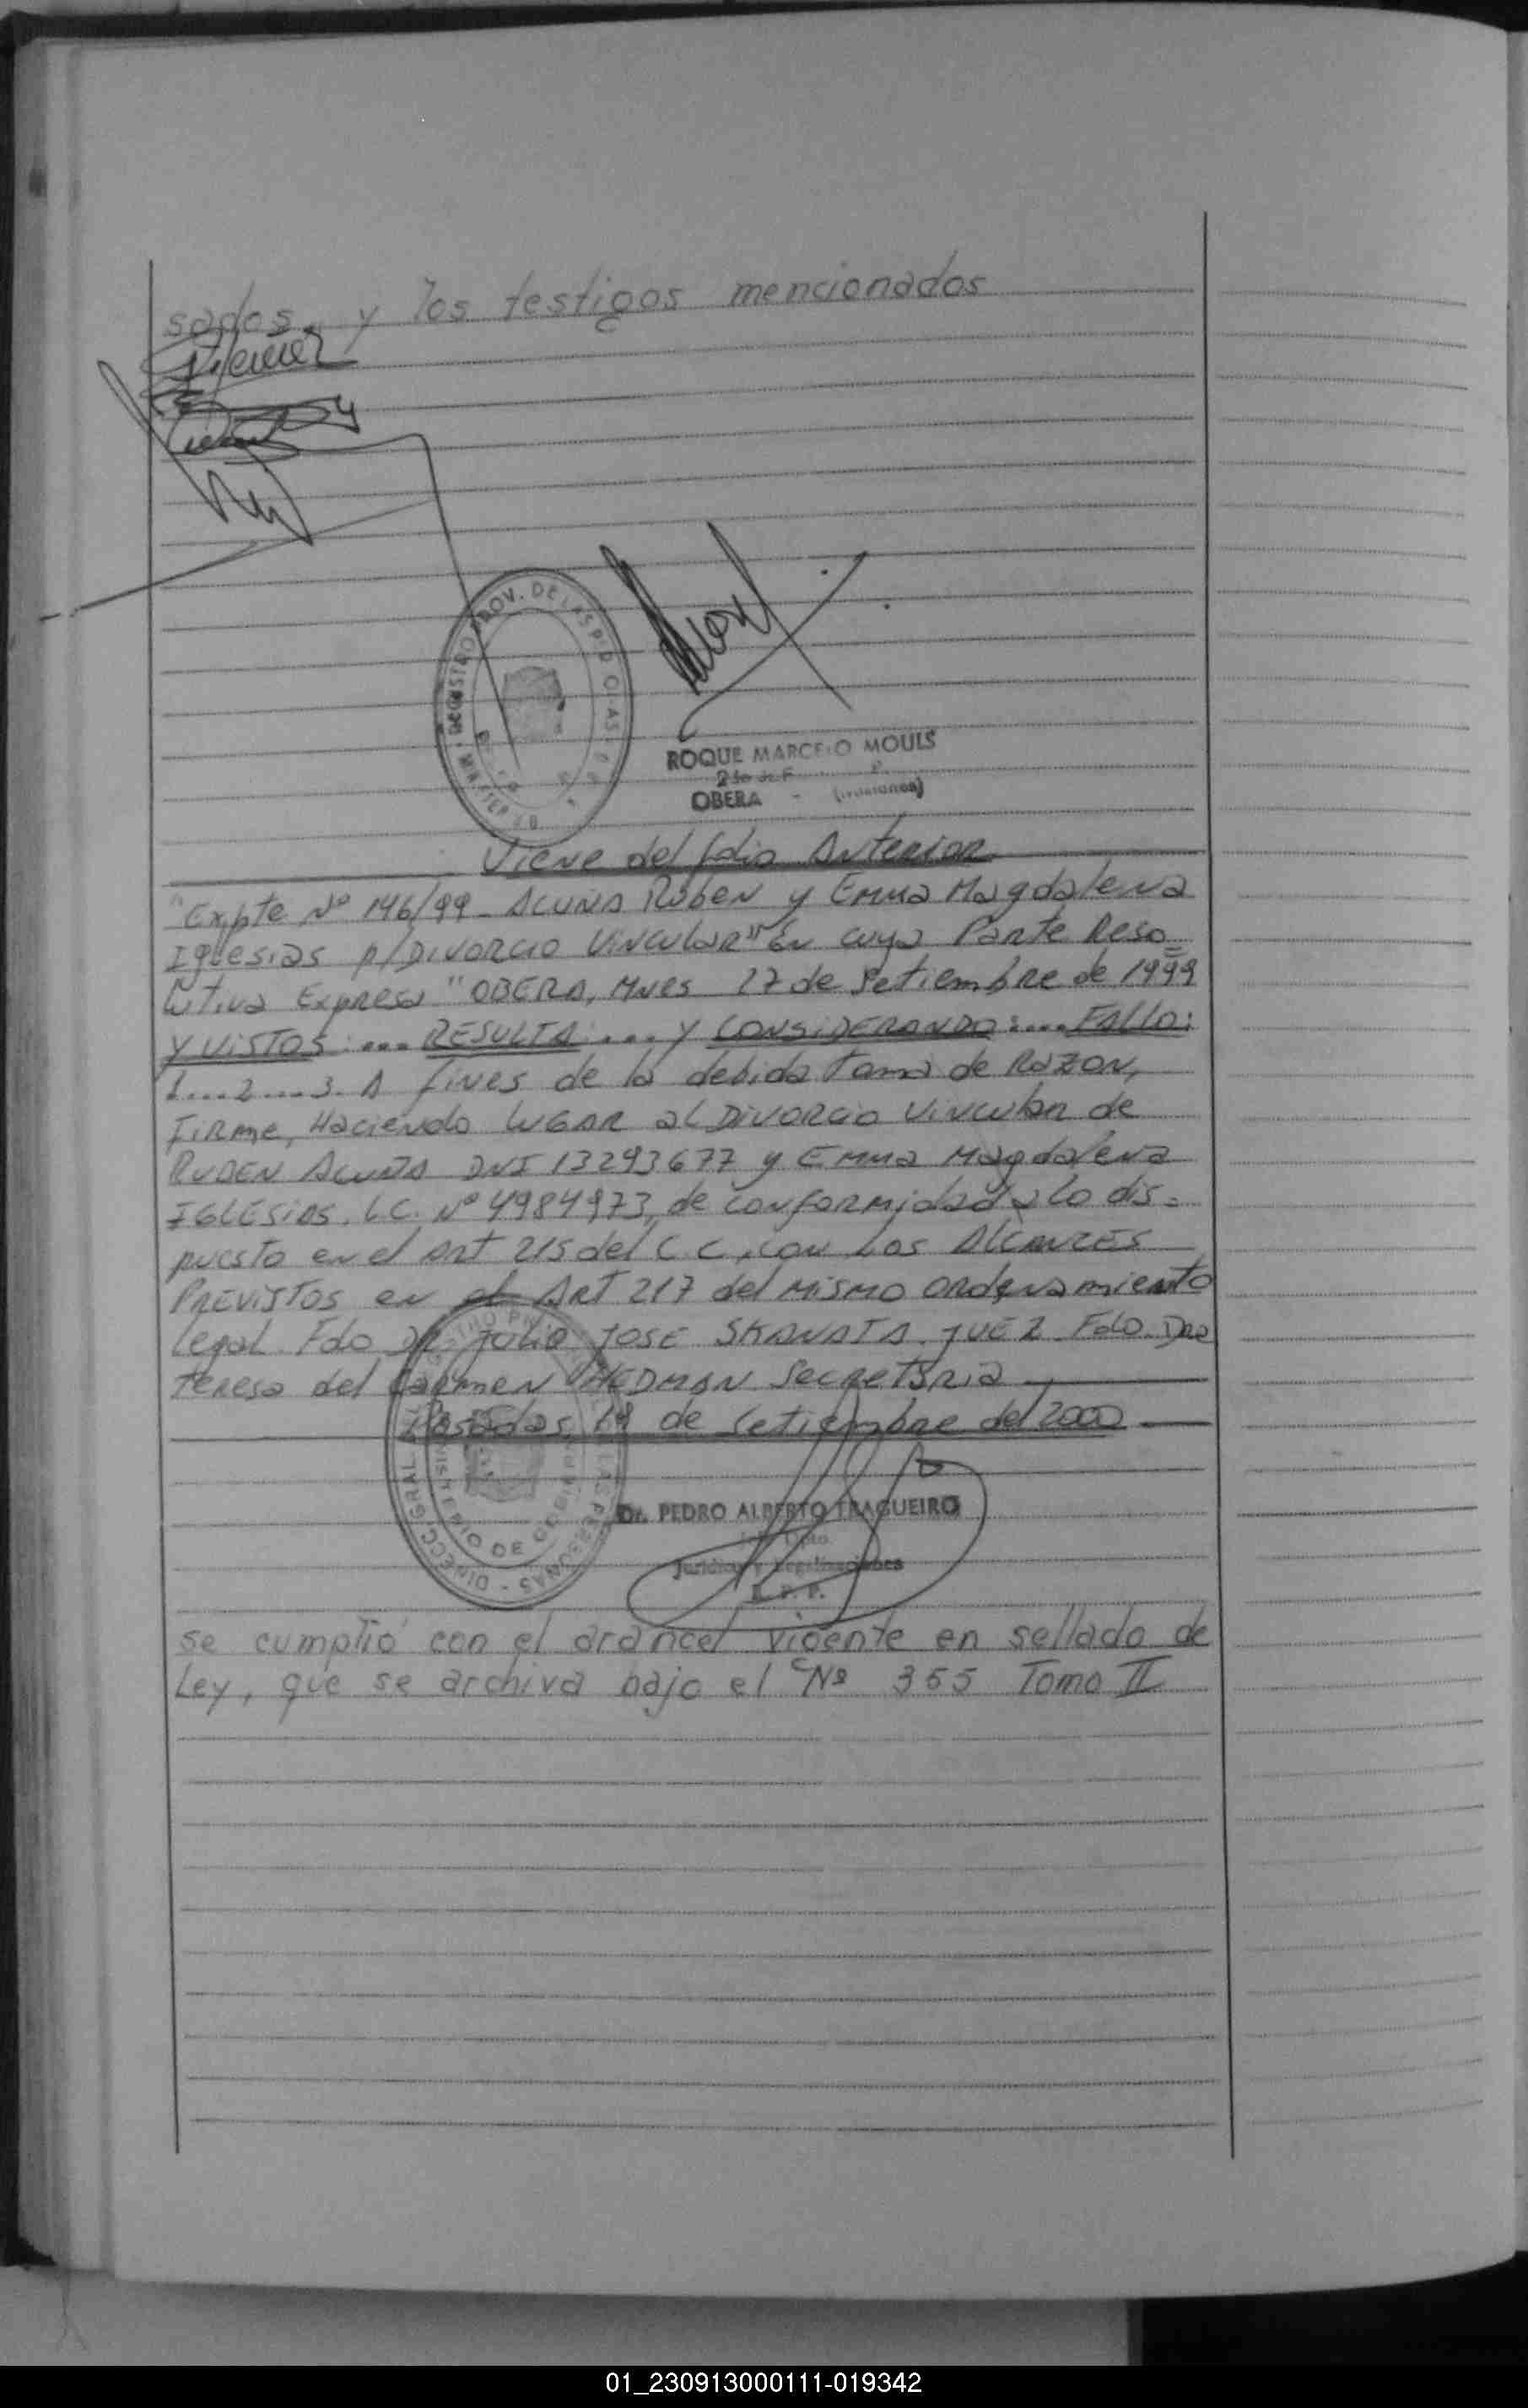 sados, y los testigos mencionados
REGISTRO PROV. DE LAS PERSONAS
ROQUE MARCELO MOULS
OBERA - (Misiones)
Viene del folio Anterior
"Expte Nº 146/99 - ACUÑA Rúben y Emma Magdalena
Iglesias p/ Divorcio Vincular" En cuya Parte Reso=
lutiva Expresa "OBERA, Mnes 27 de Setiembre de 1999
Y VISTOS: ... RESULTA: ... y CONSIDERANDO: .... FALLO:
1 .... 2 .... 3. A fines de la debida Toma de RAZON,
Firme, Haciendo LUGAR al Divorcio Vincular de
RUBEN ACUÑA DNI 13293677 y Emma Magdalena
IGLESIAS. L.C. Nº 4984973, de conformidad a lo dis=
puesto en el Art 215 del C.C, con los ALCANCES
PREVISTOS en el ART 217 del mismo Ordenamiento
legal. Fdo Dr Julio JOSE SKANATA. JUEZ Fdo. Dra
Teresa del Carmen HEDMAN Secretaria
Posadas, 19 de Setiembre del 2000
DIRECC. GRAL. REGISTRO PROV. DE LAS PERSONAS -
MINISTERIO DE GOBIERNO
Dr. PEDRO ALBERTO TRAGUEIRO
Jefe Dpto.
Jurídico y Legalizaciones
R. P. P.
se cumplió con el arancel vigente en sellado de
Ley, que se archiva bajo el Nº 355 Tomo II
01_230913000111-019342